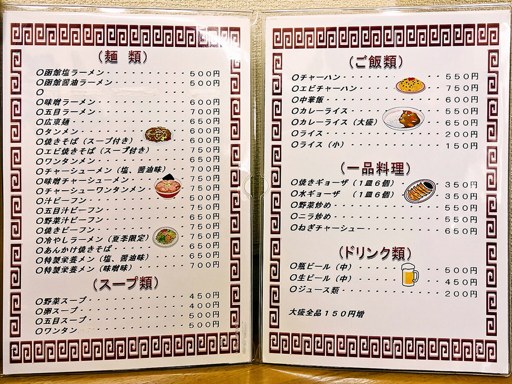 (麺 類)
〇函館塩ラーメン・・・・・・・・・500円
〇函館醤油ラーメン・・・・・・・・500円
〇
〇味噌ラーメン・・・・・・・・・・600円
〇五目ラーメン
〇広東麺
〇タンメン
〇焼きそば(スープ付き)
〇エビ焼きそば(スープ付き)
〇ワンタンメン
〇チャーシューメン(塩、醤油味)
〇味噌チャーシューメン
〇チャーシューワンタンメン
〇汁ビーフン
〇五目汁ビーフン
〇野菜汁ビーフン
〇焼きビーフン
〇冷やしラーメン(夏季限定)
〇あんかけ焼きそば
〇特製栄養メン(塩、醤油味)
〇特製栄養メン(味噌味)・・・・・・700円
(スープ類)
〇野菜スープ・・・・・・・・・・・450円
〇卵スープ・・・・・・・・・・・・400円
〇五目スープ・・・・・・・・・・・500円
〇ワンタン・・・・・・・・・・・・500円
(ご飯類)
〇チャーハン・・・・・・・・・・・550円
〇エビチャーハン・・・・・・・・・750円
〇中華飯・・・・・・・・・・・・・650円
〇カレーライス・・・・・・・・・・550円
〇カレーライス(大盛)・・・・・・・650円
〇ライス・・・・・・・・・・・・・200円
〇ライス(小)・・・・・・・・・・・150円
(一品料理)
〇焼きギョーザ(1皿6個)・・・・・・350円
〇水ギョーザ(1皿6個)・・・・・・・350円
〇野菜炒め・・・・・・・・・・・・550円
〇ニラ炒め・・・・・・・・・・・・550円
〇ねぎチャーシュー・・・・・・・・650円
(ドリンク類)
〇瓶ビール(中)・・・・・・・・・・500円
〇生ビール(中)・・・・・・・・・・450円
〇ジュース類・・・・・・・・・・・200円
大盛全品150円増